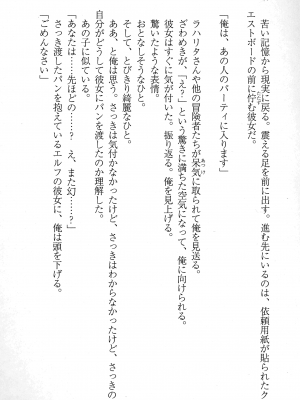 苦い記憶から現実に戻る。震える足を前に出す。進む先にいるのは、依頼用紙が貼られたク
エストボードの前に佇む彼女だ。
「俺は、あの人のパーティに入ります」
ラハリタさんや他の冒険者たちが呆気に取られて俺を見送る。
ざわめきが、「えっ？」という驚きに満ちた空気になって、俺に向けられる。
彼女はすぐに気が付いた。振り返る。俺を見上げる。
驚いたような表情。
おとなしそうなひと。
そして、とびきり綺麗なひと。
ああ、と俺は思う。さっきは気付かなかったけど、さっきはわからなかったけど、さっきの
自分がどうして彼女にパンを渡したのか理解した。
あの子に似ている。
「あなたは……先ほどの……？　え、また⁉……？」
さっき渡したパンを抱えているエルフの彼女に、俺は頭を下げる。
「ごめんなさい」